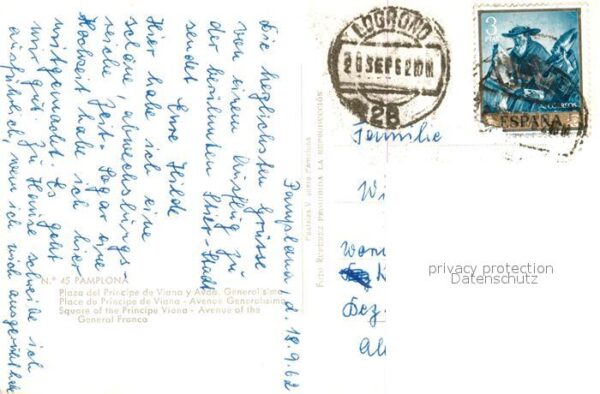 Pamplona, d. 18.9.62
Die herzlichsten Grüsse
von einem Ausflug zu
der berühmten Stier-Stadt
sendet Eure Hilde
Hier habe ich eine
schöne, abwechslungs-
reiche Zeit. Sogar eine
Hochzeit habe ich hier
mitgemacht. Es geht
mir gut. Zu Hause schreibe ich
ausführlich, wenn ich mich ausgeruht habe
Nº 45 PAMPLONA
Plaza del Príncipe de Viana y Avda. Generalísimo
Place de Príncipe de Viana - Avenue Generalísimo
Square of the Príncipe Viana - Avenue of the
General Franco
FOTO RUPEREZ PROHIBIDA LA REPRODUCCIÓN
LOGROÑO
20 SEP 62
3
PTAS
ESPAÑA
Familie
Wi
Bez.
privacy protection
Datenschutz